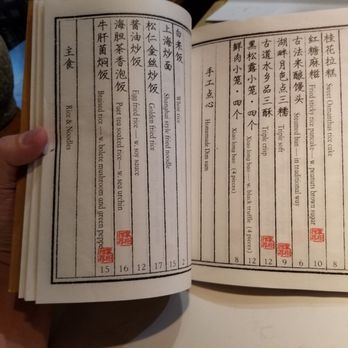 桂花拉糕
Sweet Osmanthus rice cake
8
红糖麻糍
Fried sticky rice pancake — w. peanuts brown sugar
10
古法米酿馒头
Steamed bun — in traditional way
6
湖畔月色点三糯
Triple soft
9
古道水乡品三酥
Triple crisp
12
黑松露小笼·四个
Xiao long bao — w. black truffle (4 pieces)
12
鲜肉小笼·四个
Xiao long bao (4 pieces)
8
手工点心
Homemade Dim sum
白米饭
White rice
2
上海炒面
Shanghai style fried noodle
15
松仁金丝炒饭
Golden fried rice
17
酱油炒饭
Egg fried rice — w. soy sauce
12
海胆茶香泡饭
Puer tea soaked rice — w. sea urchin
16
牛肝菌焖饭
Braised rice — w. bolete mushroom and green pepper
15
主食
Rice & Noodles